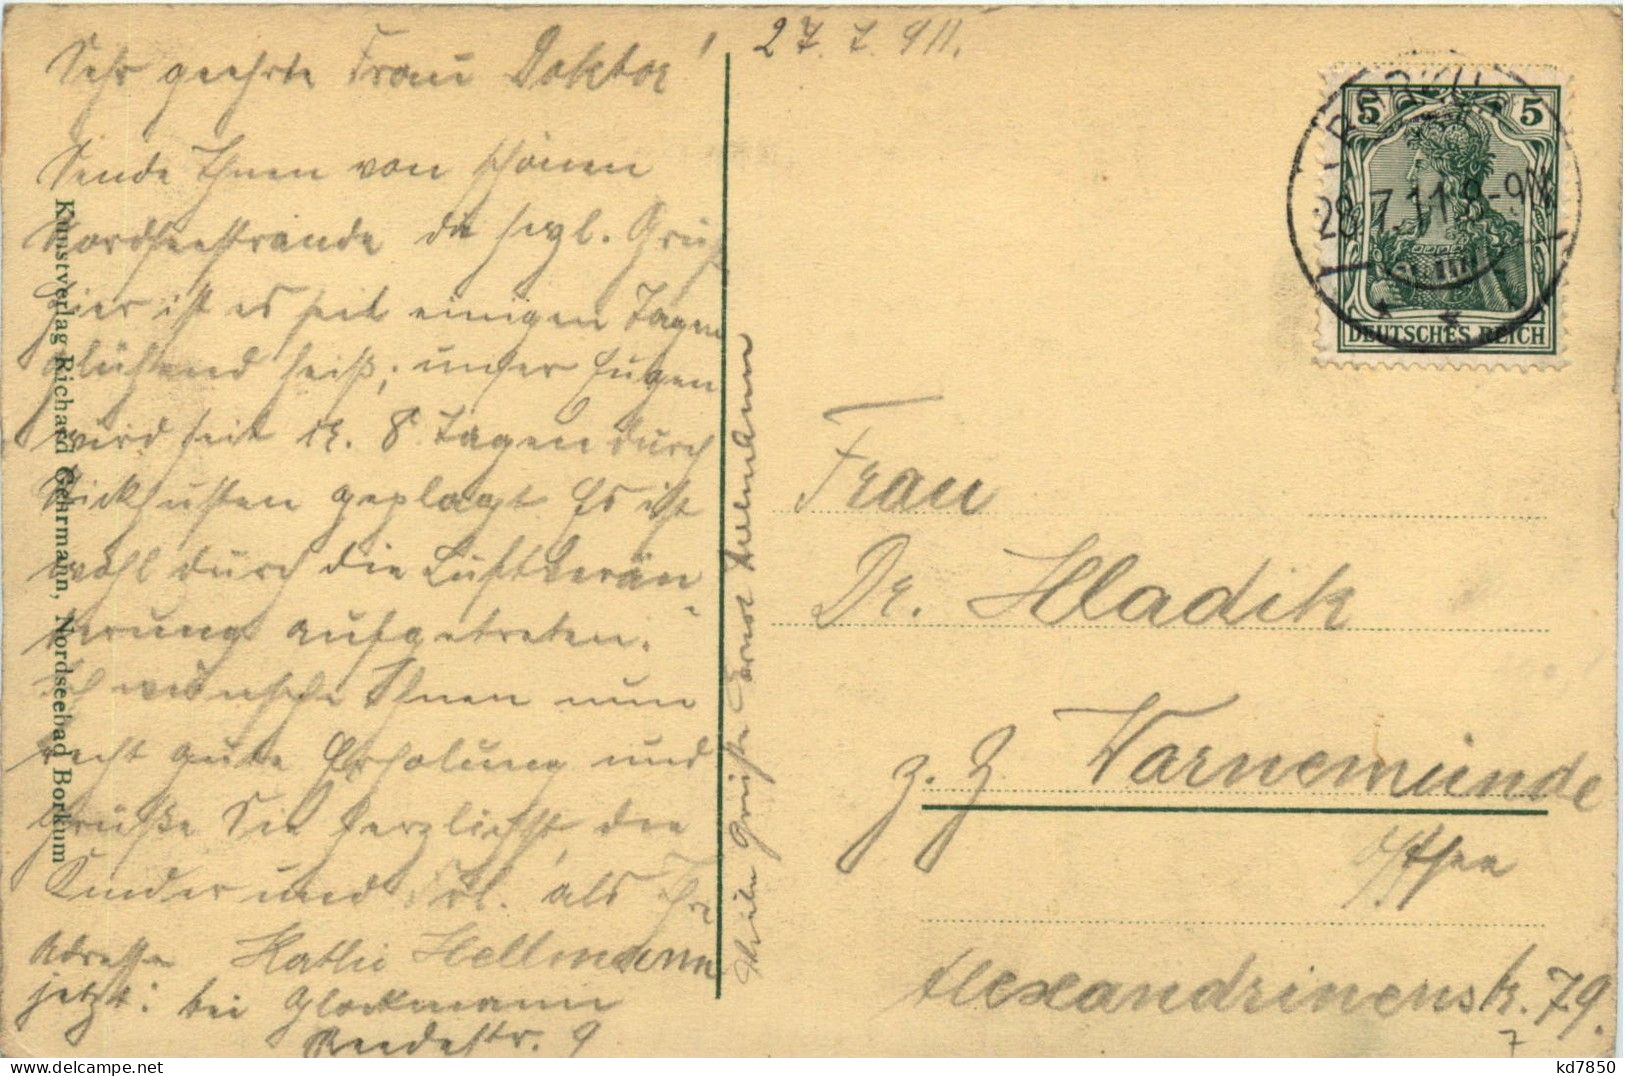 27.7.911.
Sehr geehrte Frau Doktor!
Sende Ihnen von schönen
Nordseestrande die herzl. Grüße
hier ist es seit einigen Tagen
glühend heiß; unser Eugen
wird seit 8 Tagen durch
Stickhusten geplagt. Es ist
wohl durch die Luftverän-
derung aufgetreten.
Ich wünsche Ihnen nun
recht gute Erholung und
grüße Sie herzlichst, die
Kinder und Frl. als Ihre
Kathi Hellmann
Adresse
jetzt: bei Glockmann
Reedestr. 9
Viele Grüße Ernst Hellmann
Kunstverlag Richard Gehrmann, Nordseebad Borkum
BORKUM
28.7.11.8-9N
5 5
DEUTSCHES REICH
Frau
Dr. Hladik
z. Z. Warnemünde
Ostsee
Alexandrinenstr. 79.
7
kd7850